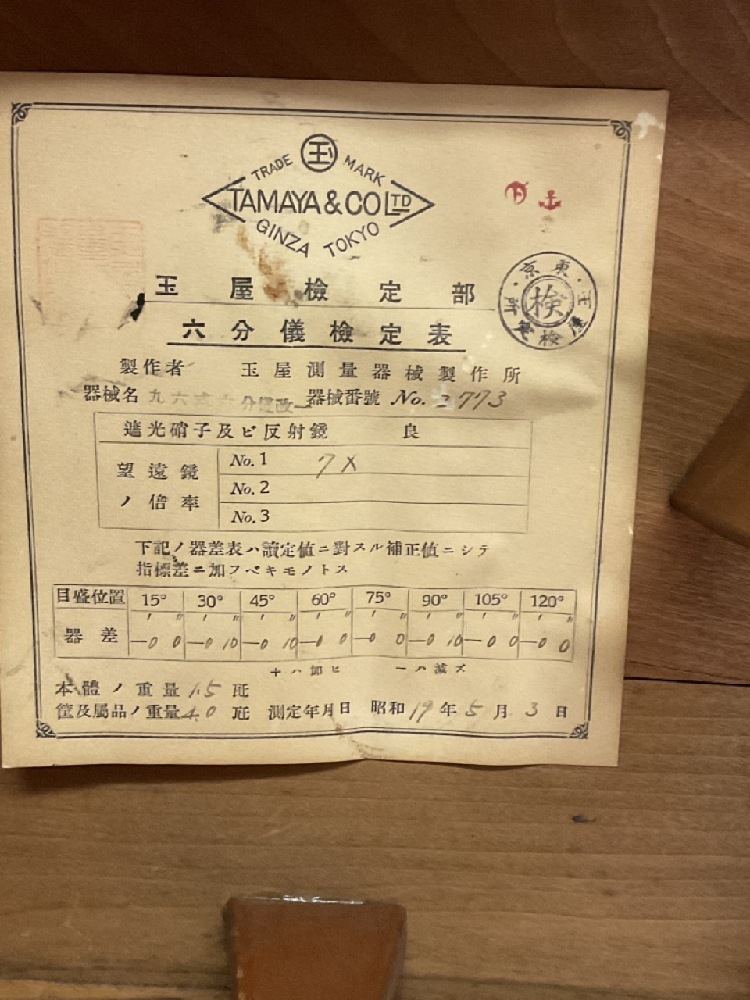 TRADE 玉 MARK
TAMAYA & CO LTD
GINZA TOKYO
玉屋檢定部
六分儀檢定表
製作者 玉屋測量器械製作所
器械名 九六式六分儀改一 器械番號 No. 773
遮光硝子及ビ反射鏡 良
望遠鏡ノ倍率
No. 1 7X
No. 2
No. 3
下記ノ器差表ハ讀定値ニ對スル補正値ニシテ
指標差ニ加フベキモノトス
目盛位置 15° 30° 45° 60° 75° 90° 105° 120°
′ ″ ′ ″ ′ ″ ′ ″ ′ ″ ′ ″ ′ ″ ′ ″
器差 -0 0 -0 10 -0 10 -0 0 -0 0 -0 10 -0 0 -0 0
十ハ加ヒ 一ハ減ズ
本體ノ重量 1.5 瓩
筐及屬品ノ重量 4.0 瓩 測定年月日 昭和 19 年 5 月 3 日
東京
検